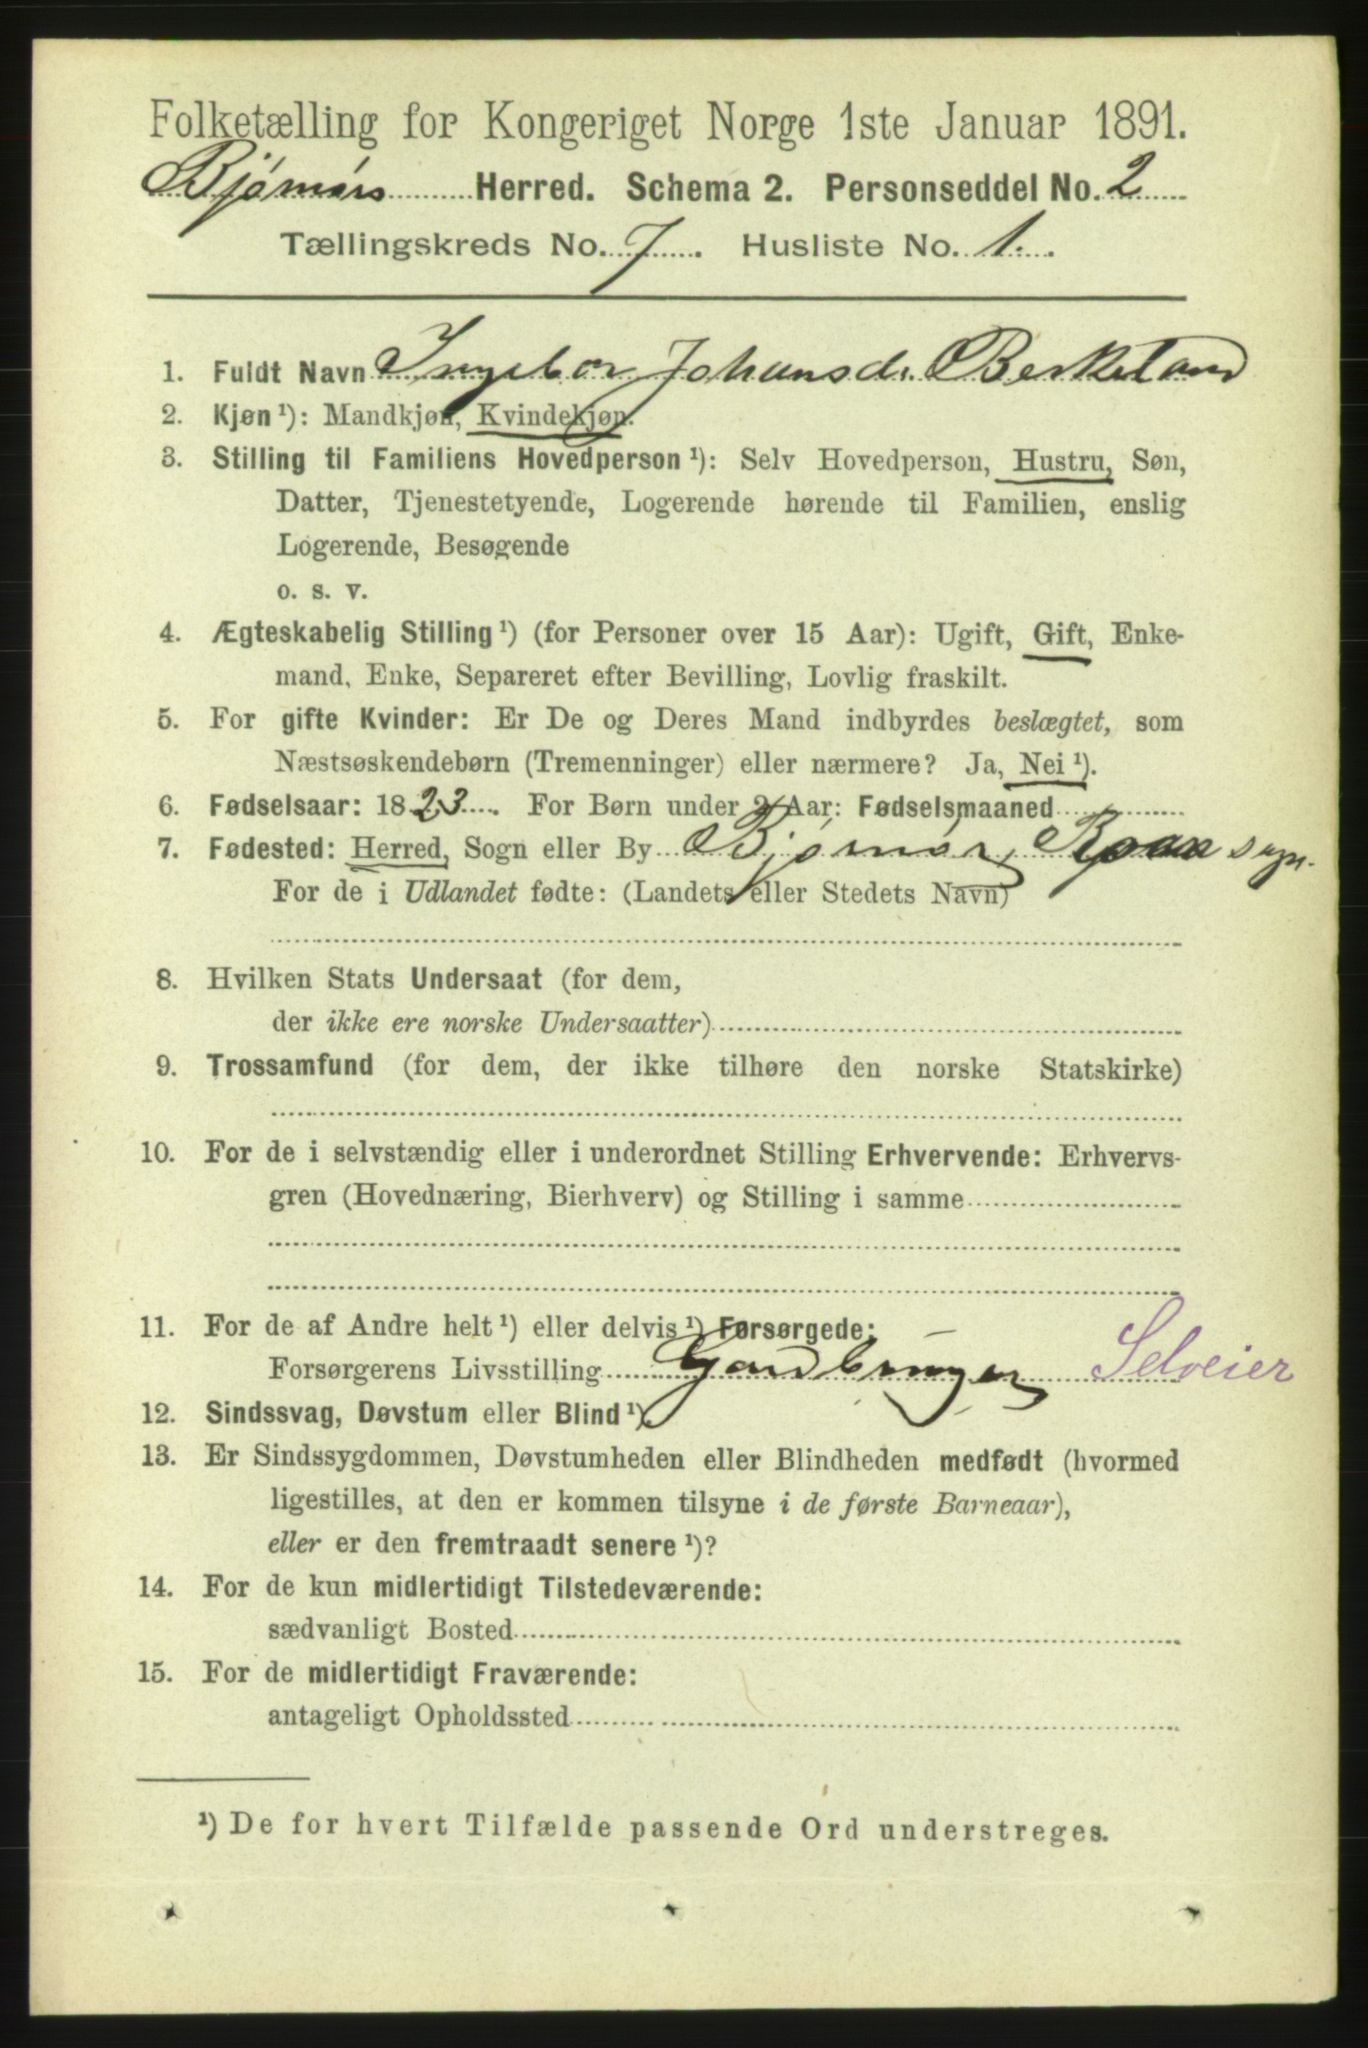 Folketælling for Kongeriget Norge 1ste Januar 1891.
Bjørnørs Herred. Schema 2. Personseddel No. 2
Tællingskreds No. 7. Husliste No. 1.
1. Fuldt Navn Ingebor Johansd. Berkeland
2. Kjøn ¹): Mandkjøn, Kvindekjøn.
3. Stilling til Familiens Hovedperson ¹): Selv Hovedperson, Hustru, Søn,
Datter, Tjenestetyende, Logerende hørende til Familien, enslig
Logerende, Besøgende
o. s. v.
4. Ægteskabelig Stilling ¹) (for Personer over 15 Aar): Ugift, Gift, Enke-
mand, Enke, Separeret efter Bevilling, Lovlig fraskilt.
5. For gifte Kvinder: Er De og Deres Mand indbyrdes beslægtet, som
Næstsøskendebørn (Tremenninger) eller nærmere? Ja, Nei ¹).
6. Fødselsaar: 1823. For Børn under 2 Aar: Fødselsmaaned
7. Fødested: Herred, Sogn eller By Bjørnør, Roan sogn.
For de i Udlandet fødte: (Landets eller Stedets Navn)
8. Hvilken Stats Undersaat (for dem,
der ikke ere norske Undersaatter)
9. Trossamfund (for dem, der ikke tilhøre den norske Statskirke)
10. For de i selvstændig eller i underordnet Stilling Erhvervende: Erhvervs-
gren (Hovednæring, Bierhverv) og Stilling i samme
11. For de af Andre helt ¹) eller delvis ¹) Forsørgede:
Forsørgerens Livsstilling Gaardbruger Selveier
12. Sindssvag, Døvstum eller Blind ¹).
13. Er Sindssygdommen, Døvstumheden eller Blindheden medfødt (hvormed
ligestilles, at den er kommen tilsyne i de første Barneaar),
eller er den fremtraadt senere ¹)?
14. For de kun midlertidigt Tilstedeværende:
sædvanligt Bosted
15. For de midlertidigt Fraværende:
antageligt Opholdssted
¹) De for hvert Tilfælde passende Ord understreges.